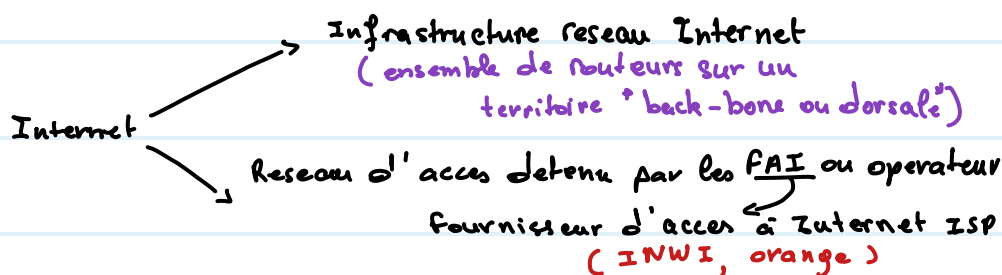 Infrastructure reseau Internet
(ensemble de routeurs sur un
territoire "back-bone ou dorsale")
Internet
Reseau d'acces detenu par les FAI ou operateur
fournisseur d'acces à Internet ISP
(INWI, orange)